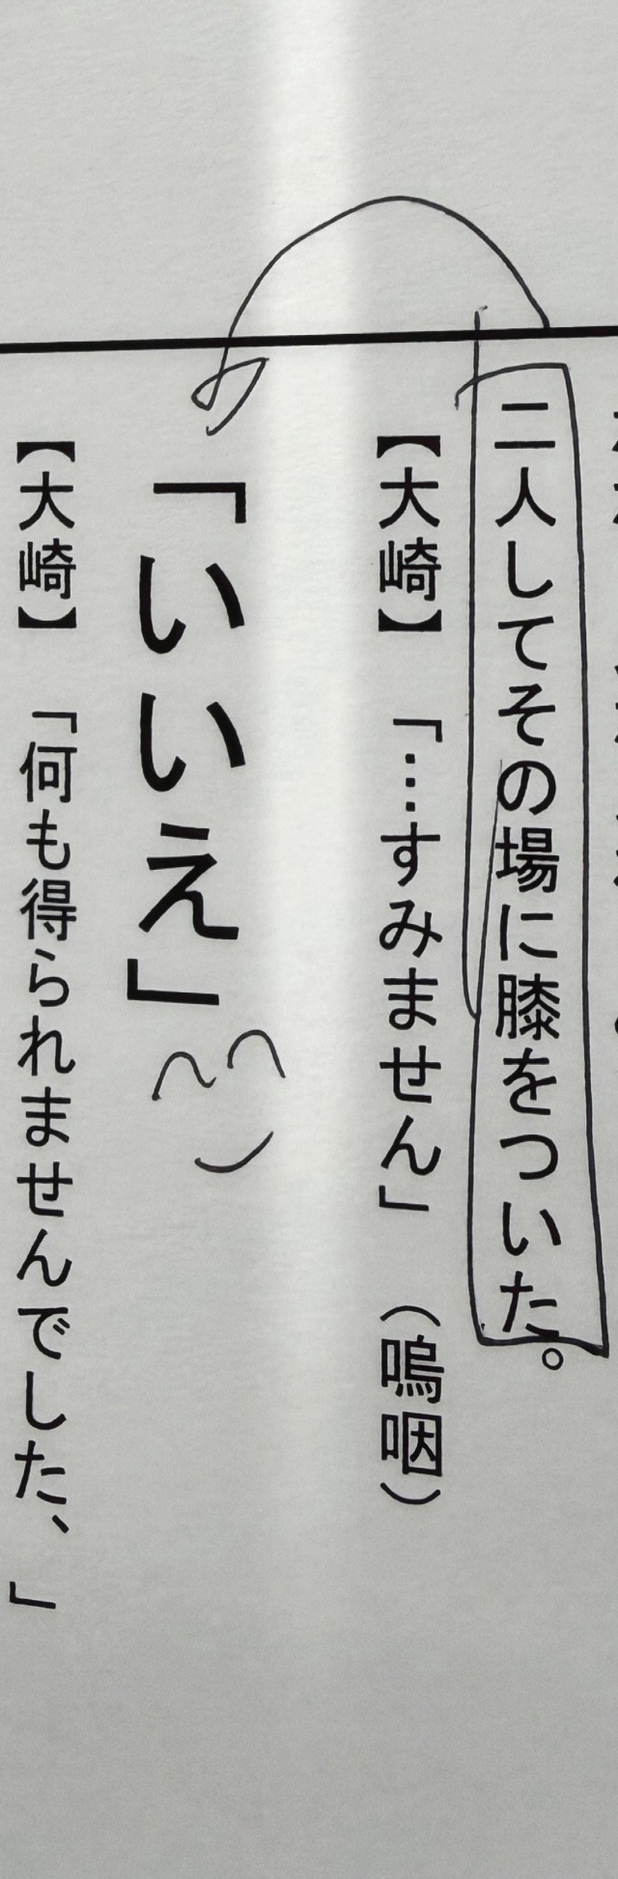 二人してその場に膝をついた。
【大崎】「…すみません」（嗚咽）
「いいえ」
【大崎】「何も得られませんでした、」